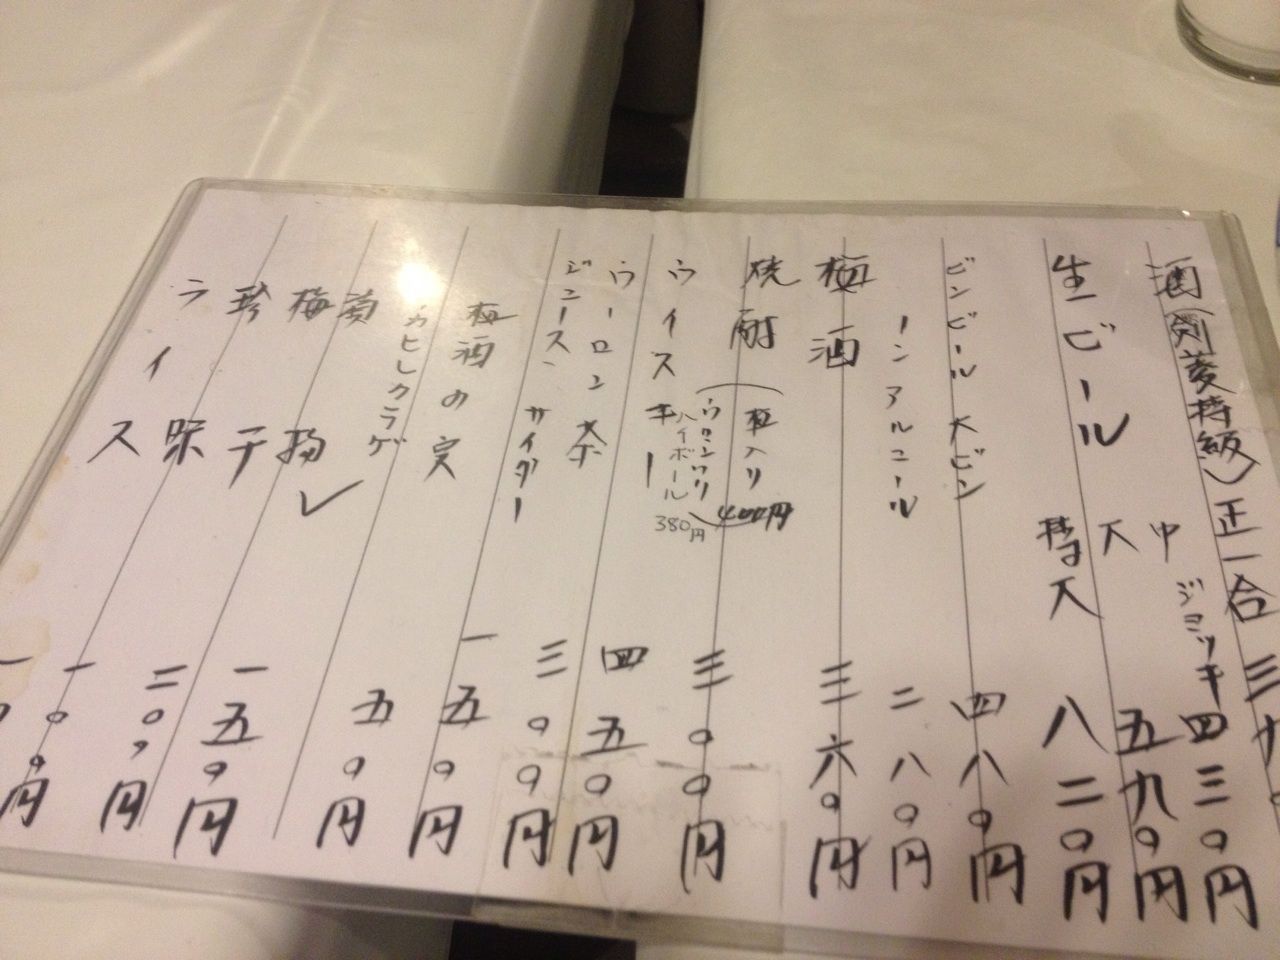 酒(剣菱特級)正一合 三
生ビール 中ジョッキ 四三〇円
大 五九〇円
特大 八二〇円
ビンビール 大ビン 四八〇円
ノンアルコール 二八〇円
梅酒 三六〇円
焼酎 (梅入り ウーロンワリ) 400円 三〇〇円
ウイスキー 四五〇円
ハイボール 380円
ウーロン茶
ジュース、サイダー 三〇〇円
梅酒の実 一五〇円
カヒレクラゲ
菊 五〇円
梅干 一五〇円
珍味 二〇〇円
ライス 一〇〇円